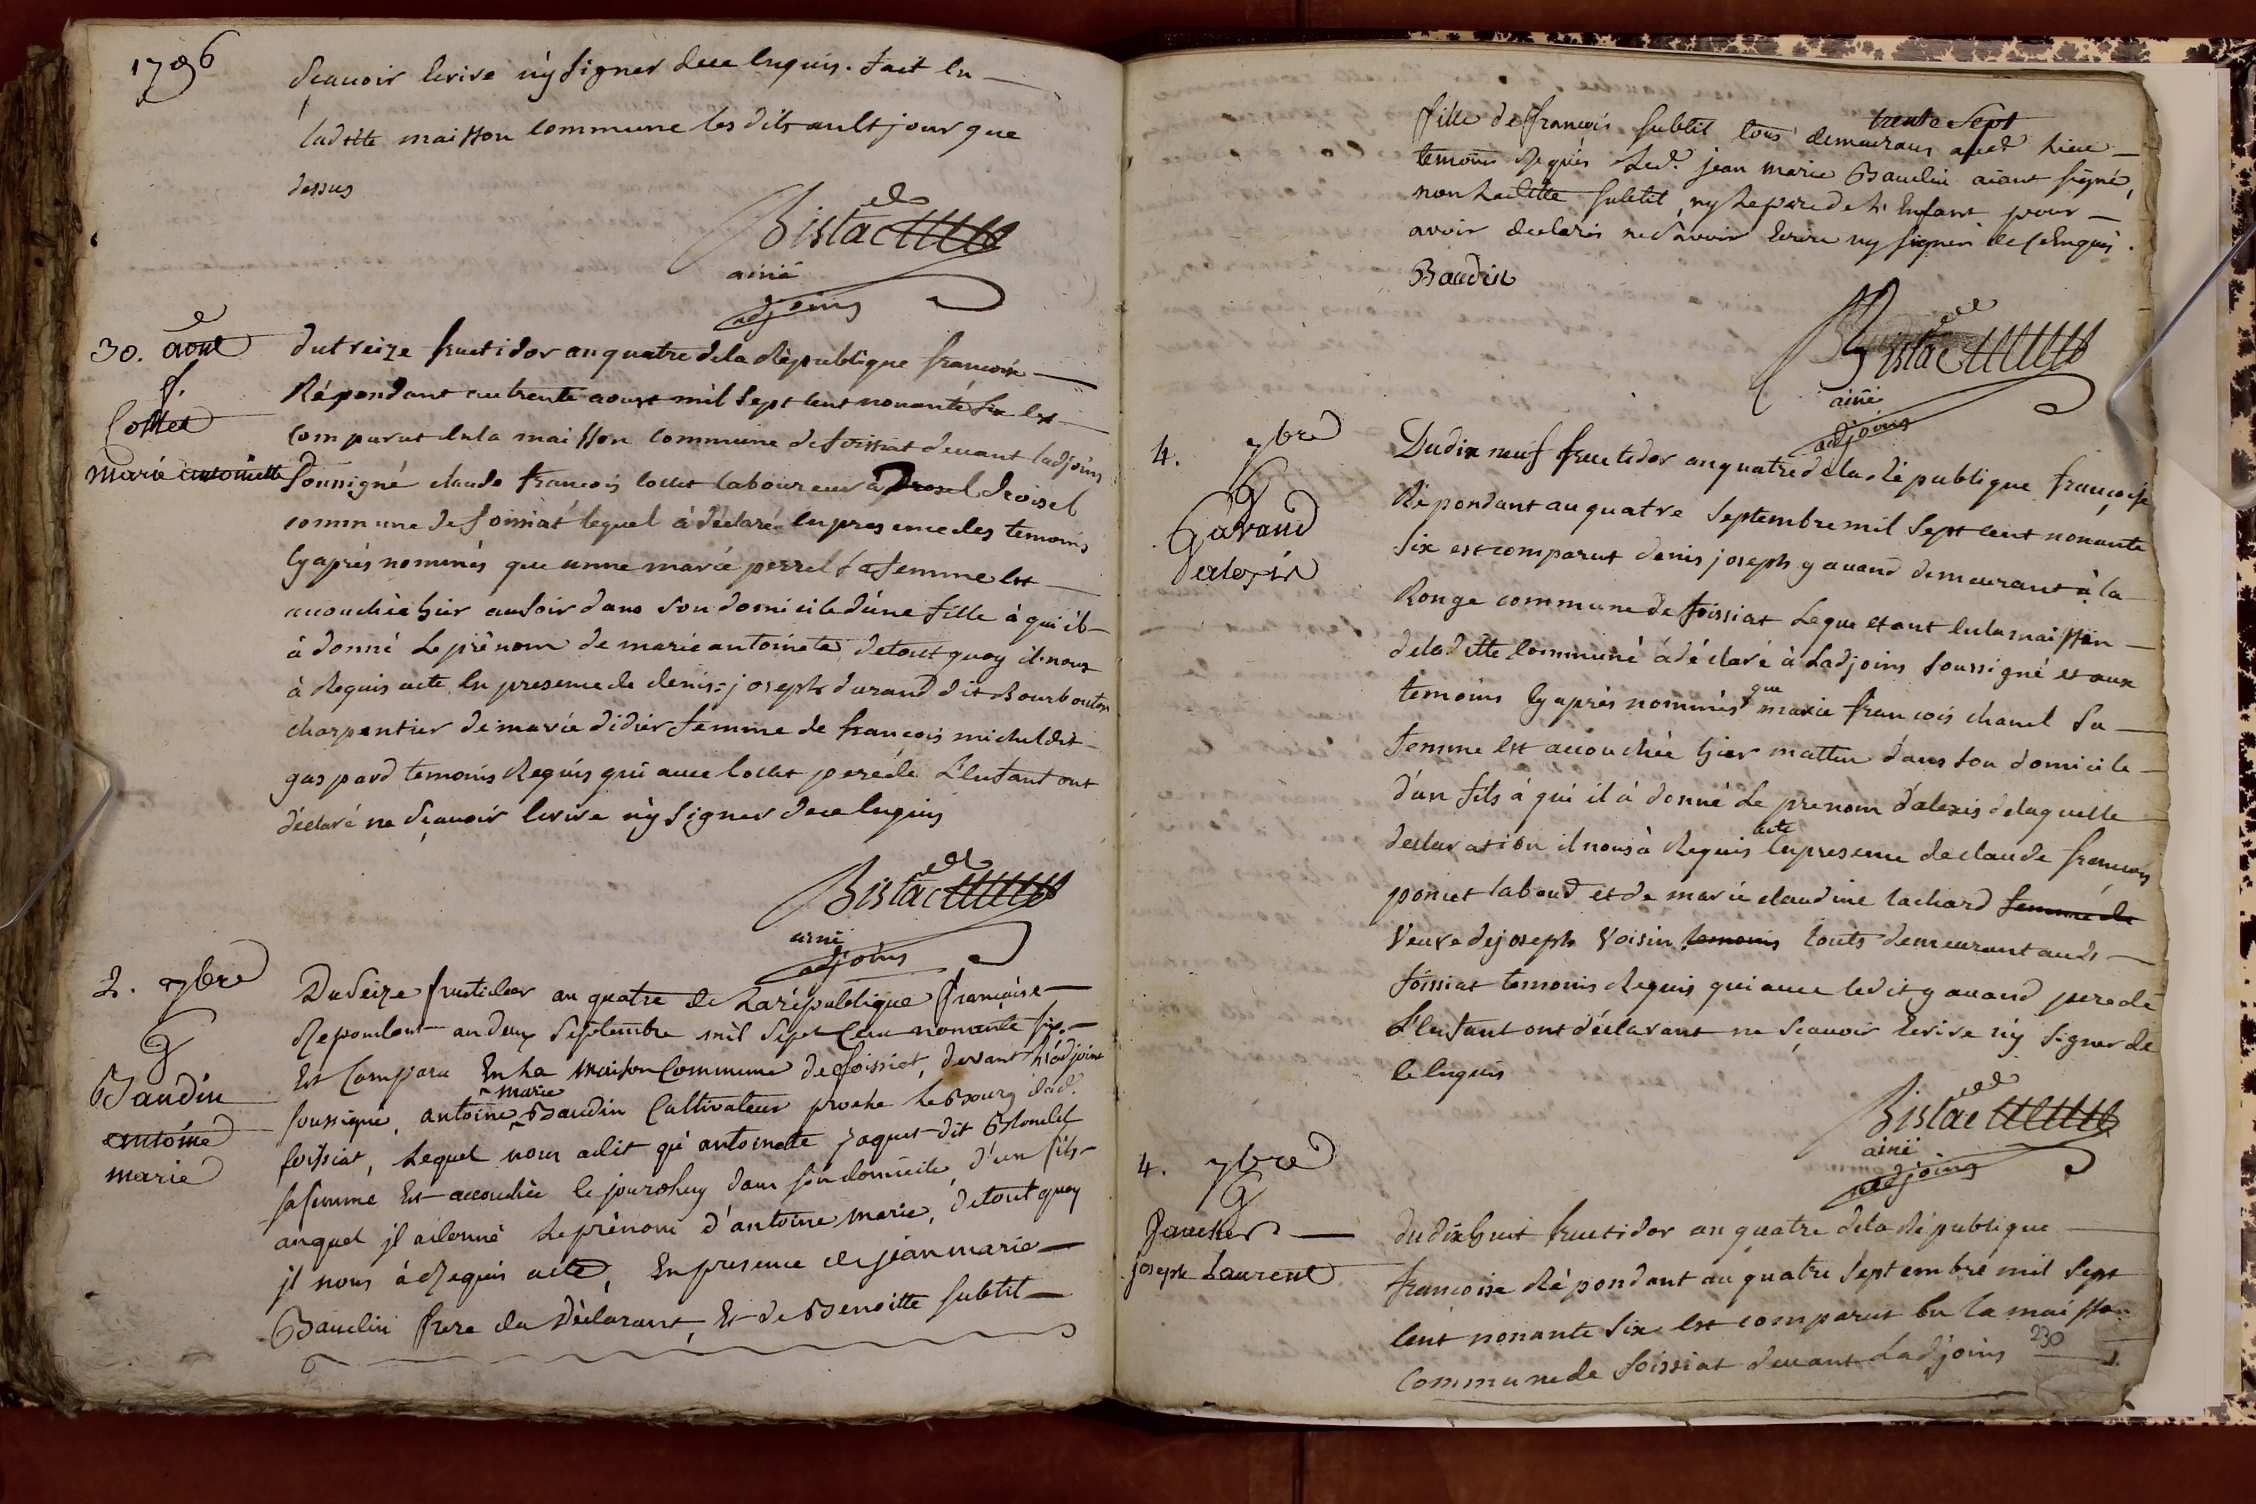 1796
Scavoir Ecrire ny Signer de ce Enquis. fait En
ladtte maisson Commune les dits ault jour que
dessus
Bistac
ainé
adjoins
30. aout
f.
Collet
marie antoinette
du treize fructidor an quatre de la République francoise
Répondant au trente aoust mil Sept Cent nonante Six Est
Comparut En la maisson Commune de foissiat devant Ladjoins
Soussigné claude francois Collet laboureur à Drosel droisel
commune de foissiat lequel à déclaré En presence des temoins
Cy après nommés que anne marie perrel sa femme Est
accouchée hier au soir dans Son domicile d'une fille à qui il
à donné Le prénom de marie antoinete de tout quoy il nous
à Requis acte En presence de denis=joseph durand dit Bourbouton
charpentier de marie didier femme de francois michel dit
gaspard temoins Requis qui avec Collet pere de L'Enfant ont
déclaré ne Scavoir Ecrire ny Signer de ce Enquis
Bistac
ainé
adjoins
2. 7bre
g
Baudin
antoine
marie
Du Seize fructidor an quatre de La république françoise
Repondant au deux Septembre mil Sept Cent nonante six.
Est Comparu En La maison Commune de foissiat, devant L'adjoint
soussigné, antoine marie Baudin Cultivateur proche le Bourg dud.
foissiat, Lequel nous a dit qu'antoinette Jaquet dit Blondel
sa femme Est accouchée le jourdhuy dans son domicile, d'un fils
auquel jl a donné Le prénom d'antoine marie, de tout quoy
jl nous à Requis acte, En presence de jean marie
Baudin frere du Déclarant, Et de Benoitte subtil
trente Sept
fille de françois subtil tous demeurans aud. Lieu
temoins Requis Led. jean marie Baudin aiant signé,
non Laditte subtil, ny Le pere de L'Enfant pour
avoir declarés ne Sçavoir Ecrire ny signer de ce Enquis.
Baudin
Bistac
ainé
adjoins
4. 7bre
g
Gavand
dalexis
Du dix neuf fructidor an quatre de la République françoise
Répondant au quatre Septembre mil Sept cent nonante
Six est comparut denis joseph gavand demeurant à la
Ronge commune de foissiat Leque etant En la maisson
de laditte Commune à déclaré à Ladjoins Soussigné et aux
temoins Cy après nommés que marie francois chanel Sa
femme Est accouchée hier mattin dans Son domicile
d'un fils à qui il à donné Le prenom d'alexis de laquelle
declaration il nous à Requis acte En presence de claude francois
poncet laboud et de marie claudine Cachard femme de
Veuve de joseph Voisin temoins touts demeurant aud.
foissiat temoins Requis qui avec ledit gavand pere de
L'Enfant ont déclarant ne Scavoir Ecrire ny Signer de
Ce Enquis
Bistac
ainé
adjoins
4. 7bre
g
joseph Laurent
du dix huit fructidor an quatre de la République
françoise Répondant au quatre Septembre mil Sept
Cent nonante Six Est comparut En la maisson
Commune de foissiat devant Ladjoins
230